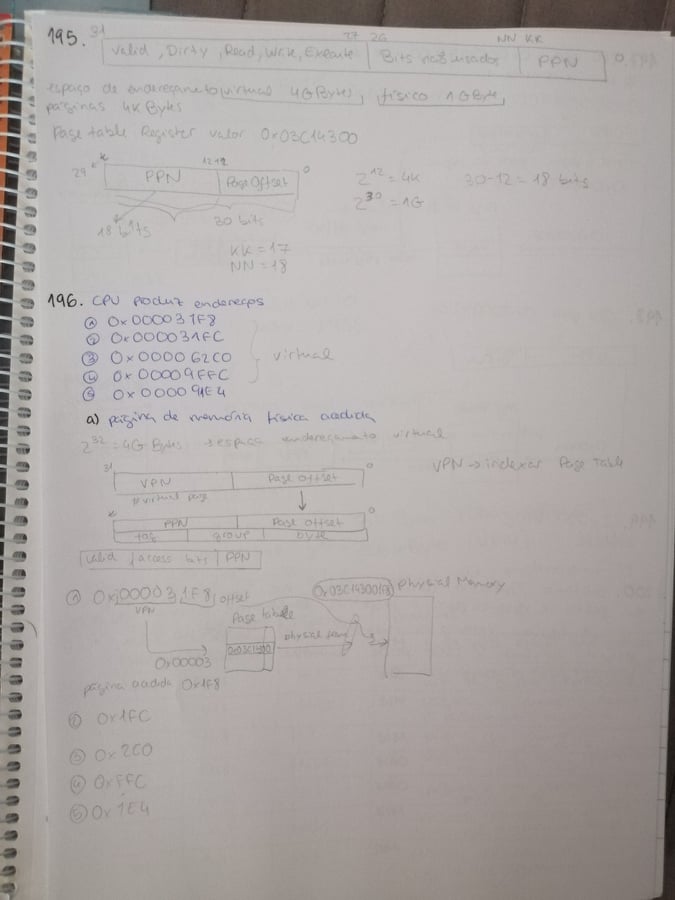 195.
31 27 26 NN KK 0
Valid, Dirty, Read, Write, Execute | Bits não usados | PPN
espaço de endereçamento virtual 4GBytes, físico 1GByte,
páginas 4KBytes
Page table Register valor 0x03C14300
29 12 11 0
PPN | Page Offset
2^12 = 4K 30-12 = 18 bits
2^30 = 1G
18 bits 30 bits
KK = 17
NN = 18
196. CPU Produz endereços
① 0x000031F8
② 0x000031FC
③ 0x000062C0
④ 0x00009FFC
⑤ 0x000091E4
virtual
a) página de memória física acedida
2^32 = 4G Bytes espaço endereçamento virtual
31 0
VPN | Page Offset
VPN → indexar Page Table
# virtual page
0
PPN | Page Offset
tag | group | byte
Valid | access bits | PPN
① 0x000031F8 offset
VPN
0x03C143001F8 Physical Memory
Page table
0x03C14300
physical
0x00003
página acedida 0x1F8
② 0x1FC
③ 0x2C0
④ 0xFFC
⑤ 0x1E4